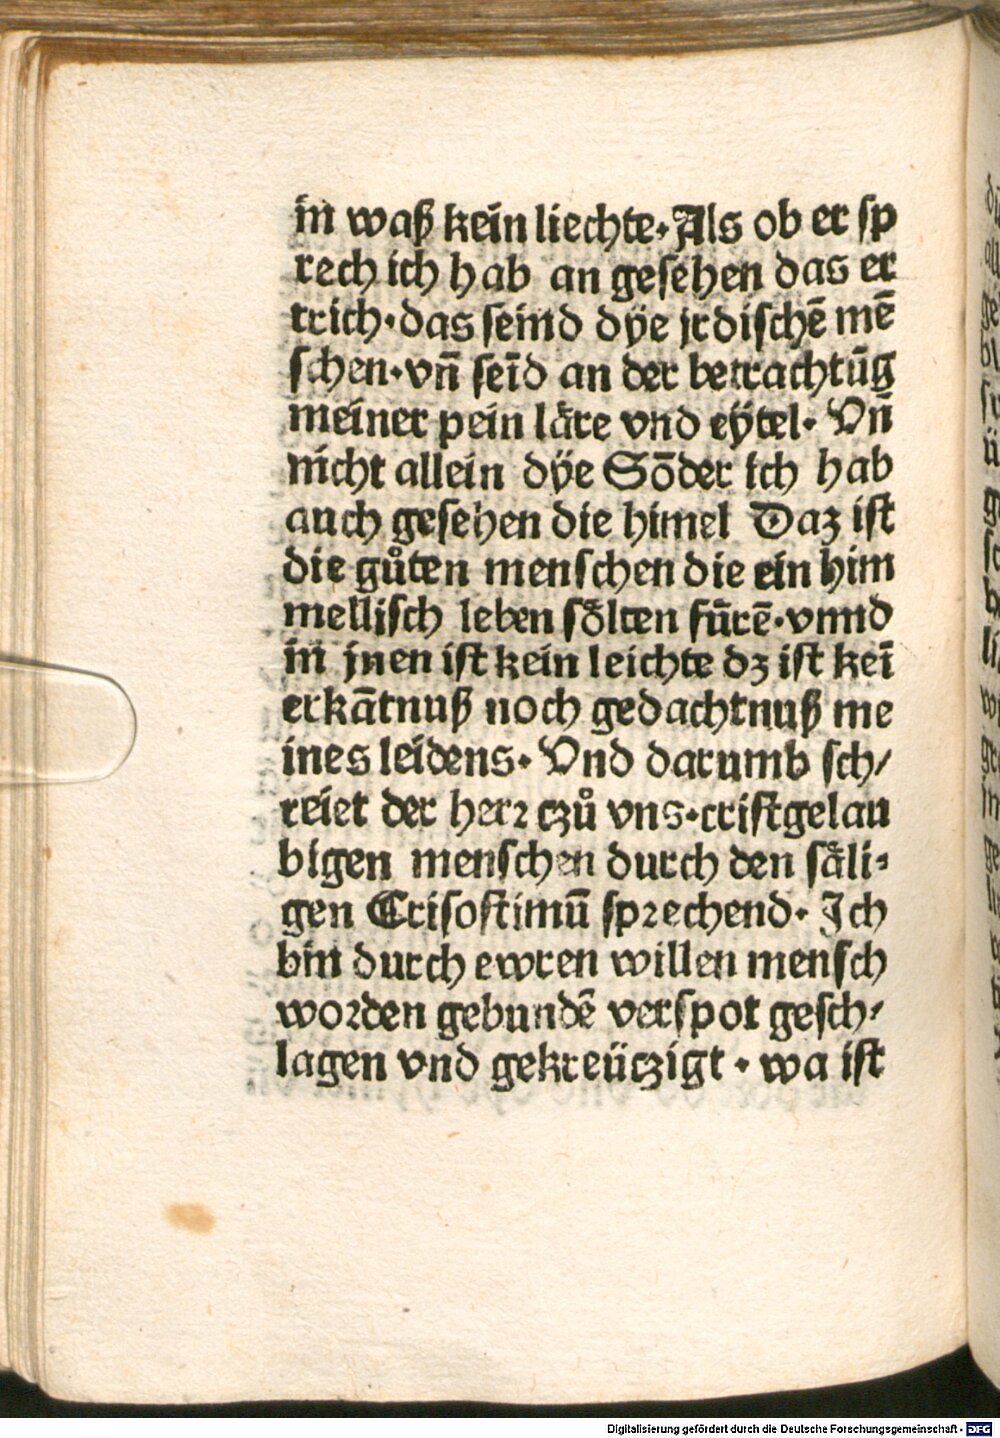 in waß kein liechte. Als ob er sp
rech ich hab an gesehen das er
trich. das seind dÿe jrdischē mē
schen. vn̄ seīd an der betrachtūg
meiner pein lāre vnd eÿtel. Vn̄
nicht allein dÿe Sōder ich hab
auch gesehen die himel Daz ist
die gůten menschen die ein him
mellisch leben sölten fürē. vnnd
in jnen ist kein leichte dz ist keī
erkātnuß noch gedachtnuß me
ines leidens. Vnd darumb sch/
reiet der herr czů vns. cristgelau
bigen menschen durch den säli⸗
gen Crisostimū sprechend. Ich
bin durch ewren willen mensch
worden gebundē verspot gesch/
lagen vnd gekreüczigt. wa ist
Digitalisierung gefördert durch die Deutsche Forschungsgemeinschaft - DFG